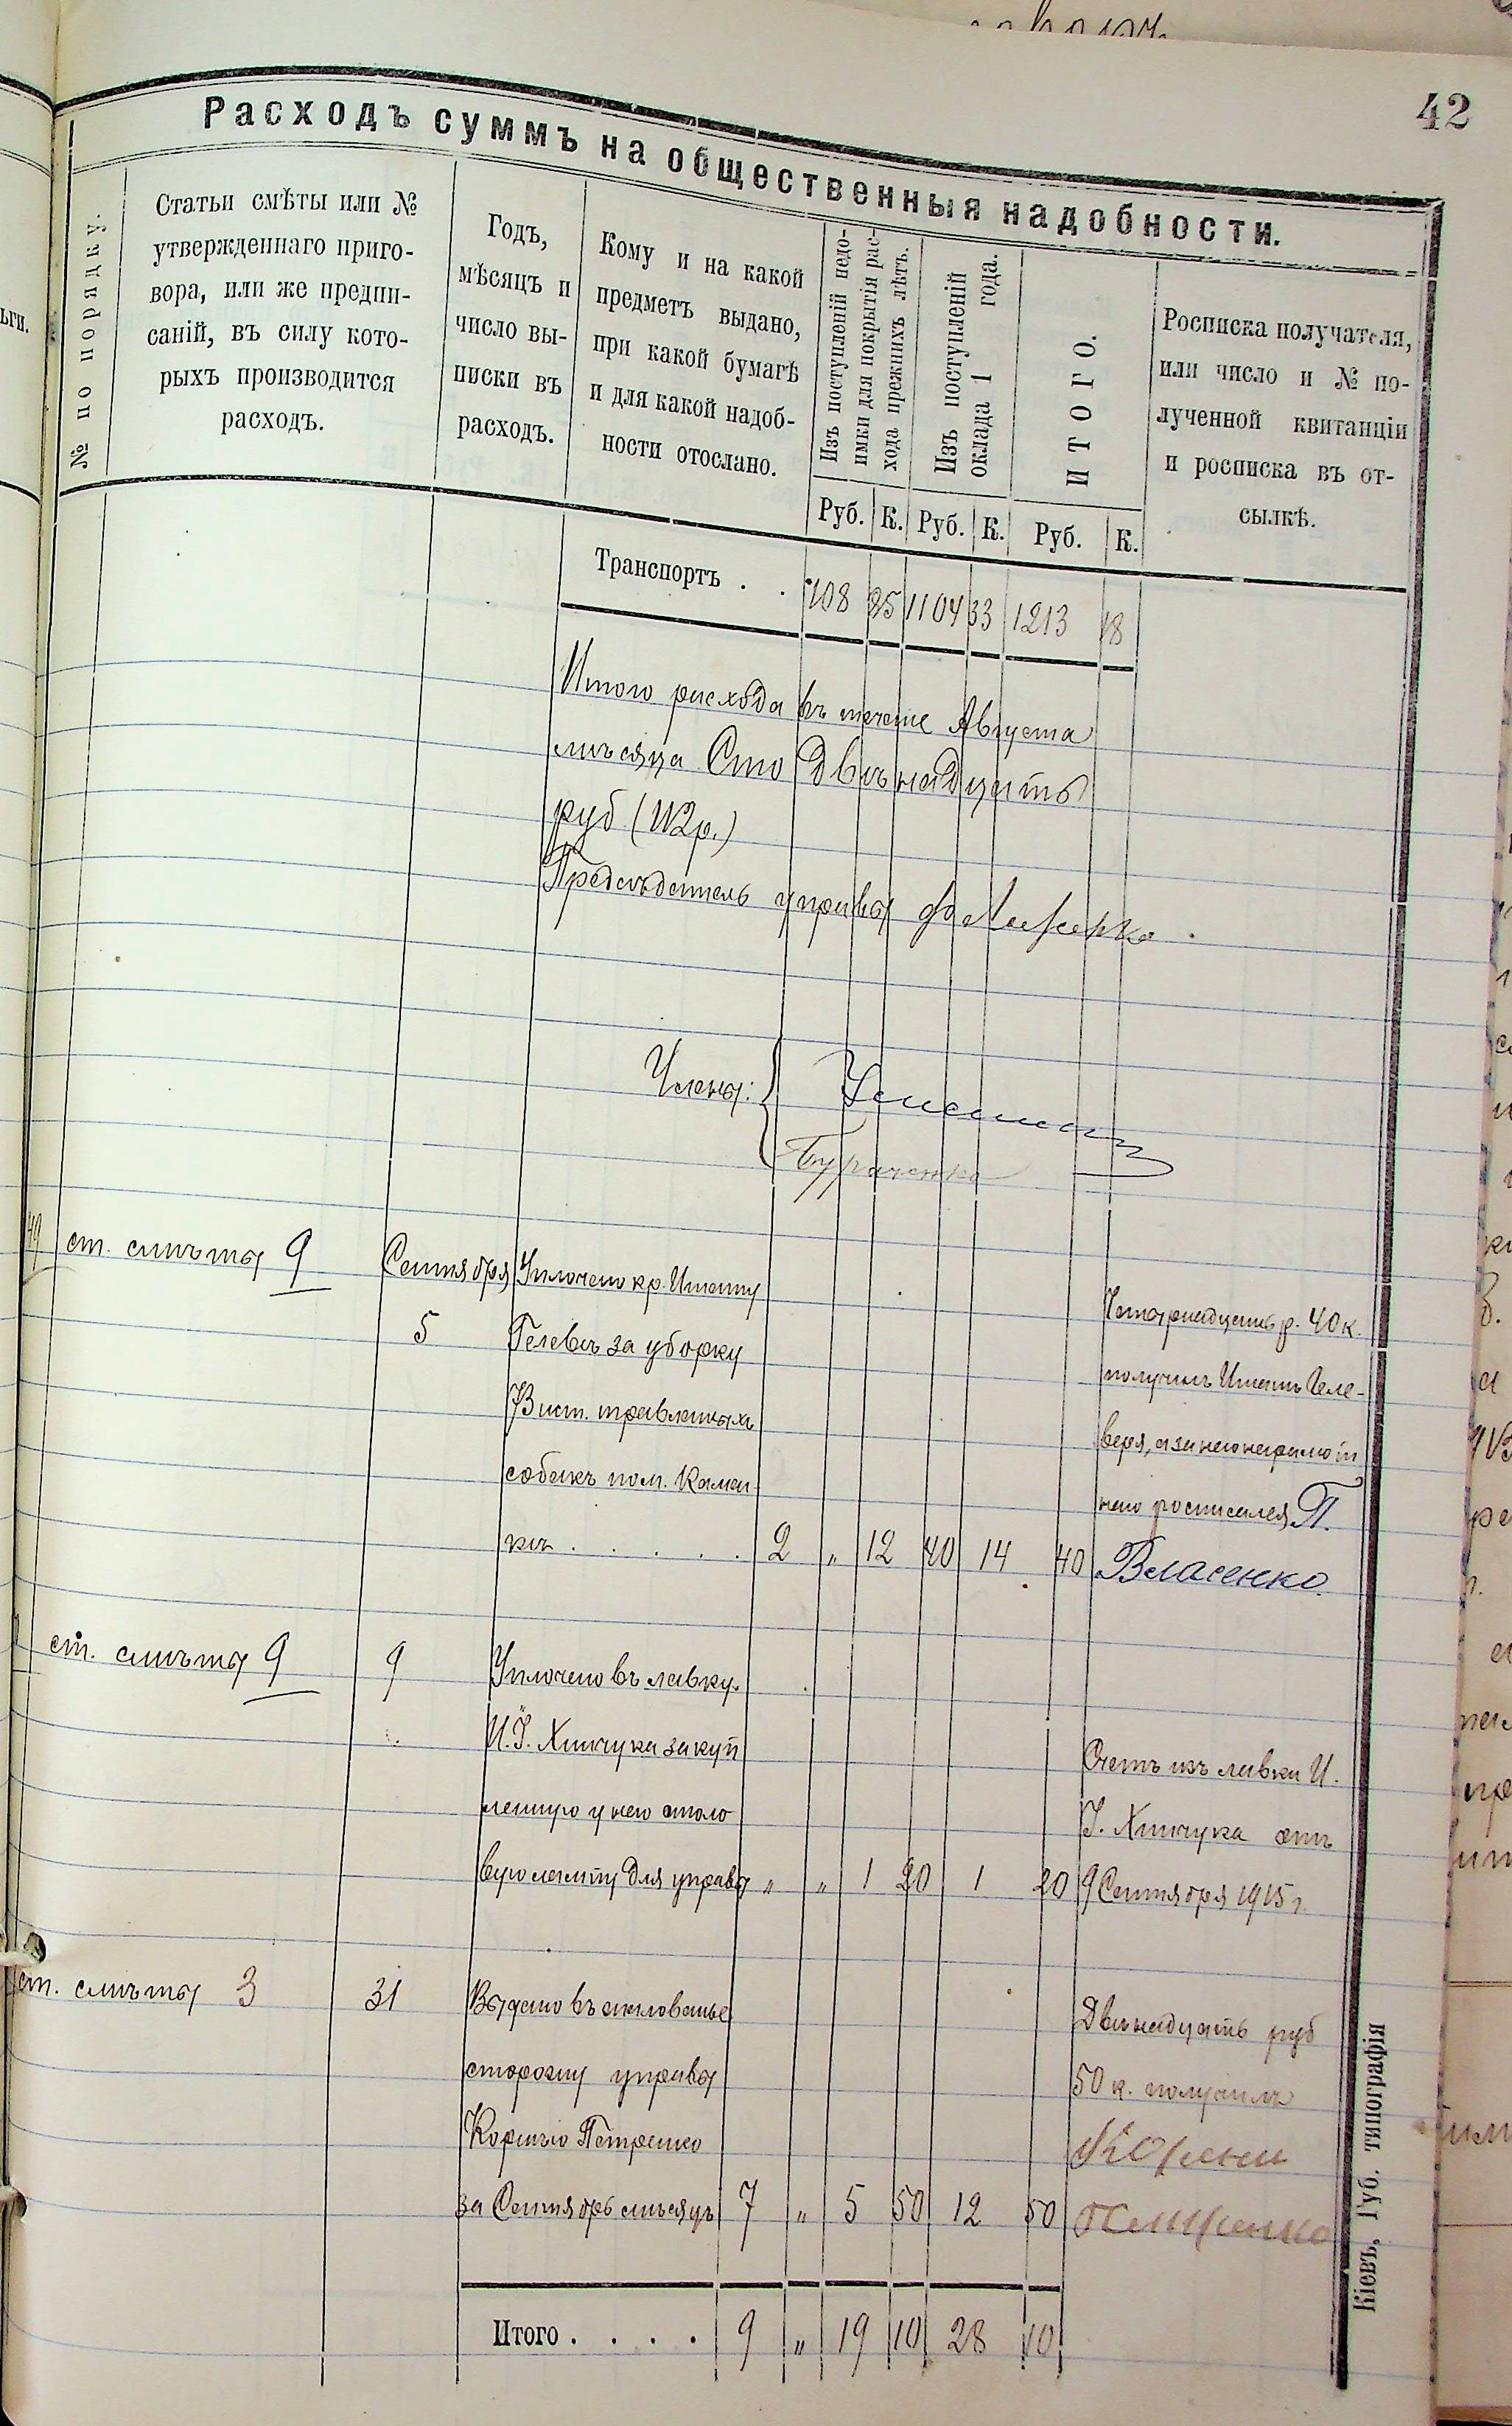 42
Расходъ суммъ на общественныя надобности.
№ по порядку.
Статьи смѣты или №
утвержденнаго приго-
вора, или же предпи-
саній, въ силу кото-
рыхъ производится
расходъ.
Годъ,
мѣсяцъ и
число вы-
писки въ
расходъ.
Кому и на какой
предметъ выдано,
при какой бумагѣ
и для какой надоб-
ности отослано.
Изъ поступленій недо-
имки для покрытія рас-
хода прежнихъ лѣтъ.
Изъ поступленій
оклада 1 года.
ИТОГО.
Росписка получателя,
или число и № по-
лученной квитанціи
и росписка въ от-
сылкѣ.
Руб. К. Руб. К. Руб. К.
Транспортъ . . 108 85 1104 33 1213 18
Итого расхода въ течете Августа
мѣсяца Сто двѣнадцать
руб (112р.)
Предсѣдатель управы
Члены:
49 ст. смѣты 9 Сентября Уплочено кр. Игнату
5 Гелевѣ за уборку
13 шт. травленыхъ
собакъ пом. Камен-
кѣ . . . . . 2 „ 12 40 14 40
Четырнадцать р. 40 к.
получилъ Игнатъ Геле-
веря, а за него неграмот
наго росписался П.
Власенко.
ст. смѣты 9 9 Уплочено въ лавку
И. І. Хинчука за куп
ленную у него столо
вую лампу для управы „ „ 1 20 1 20
Счетъ изъ лавки И.
І. Хинчука отъ
9 Сентября 1915 г.
ст. смѣты 3 31 Выдано въ жалованье
сторожу управы
Корнѣю Петренко
за Сентябрь мѣсяцъ 7 „ 5 50 12 50
Двѣнадцать руб
50 к. получилъ
Корней
Петренко
Итого . . . . 9 „ 19 10 28 10
Кіевъ, Губ. типографія